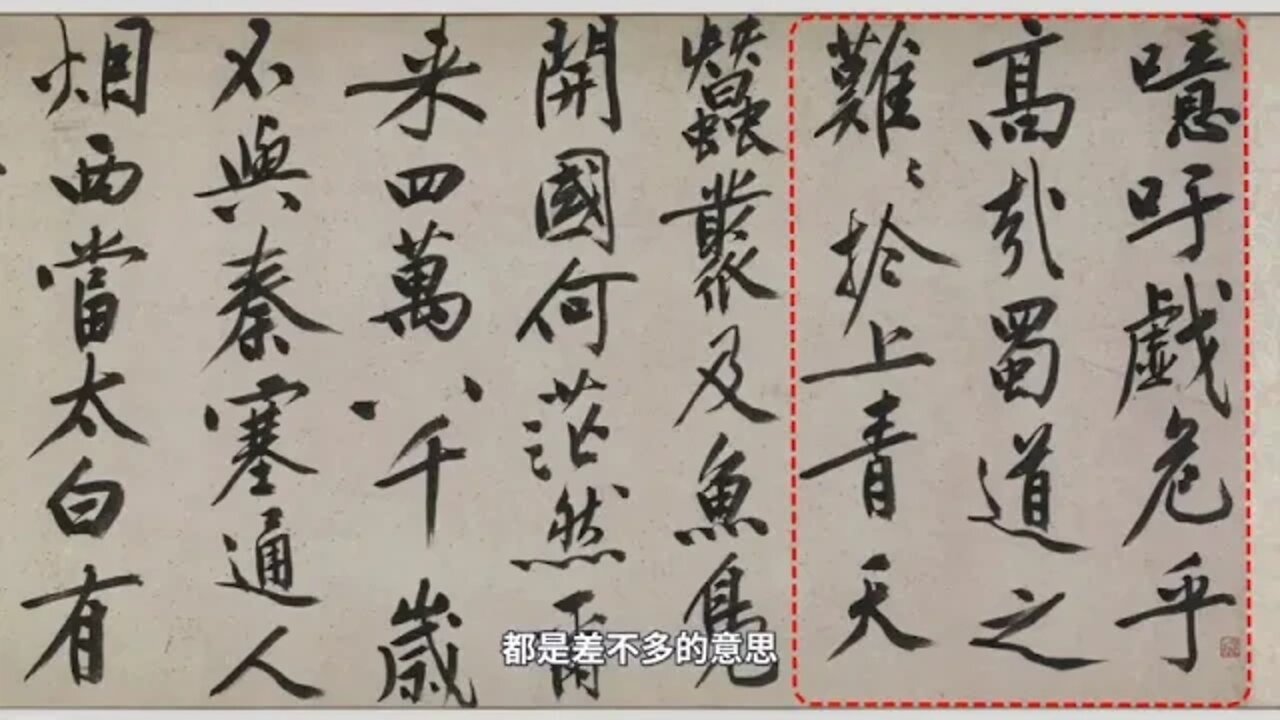 噫吁戯危乎
高哉蜀道之
難〻於上青天
蠶叢及魚鳧
開國何茫然爾
来四萬八千歲
不與秦塞通人
烟西當太白有
都是差不多的意思